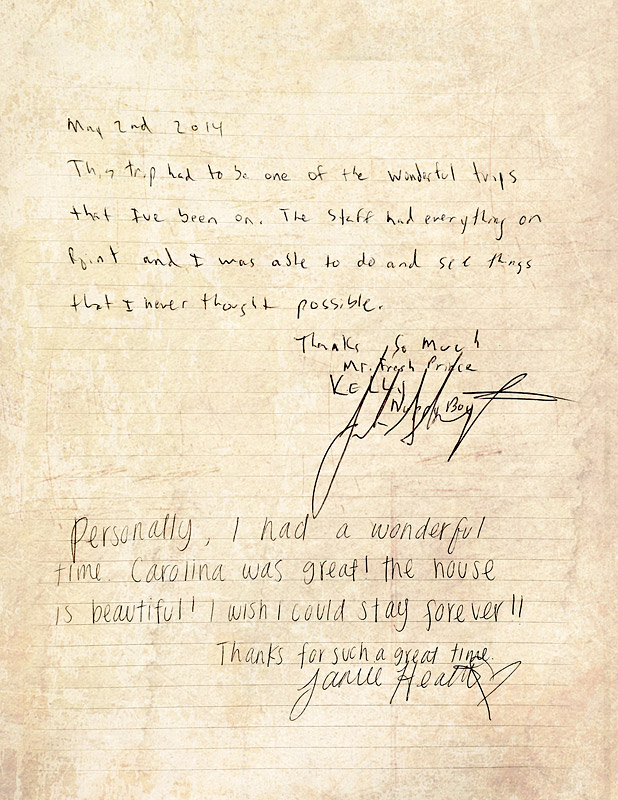 May 2nd 2014
This trip had to be one of the wonderful trips
that I've been on. The staff had everything on
Point and I was able to do and see things
that I never thought possible.
Thanks So much
Mr. Fresh Prince
KELLY
Boy
Personally, I had a wonderful
time. Carolina was great! the house
is beautiful! I wish I could stay forever!!
Thanks for such a great time.
Janie Heath